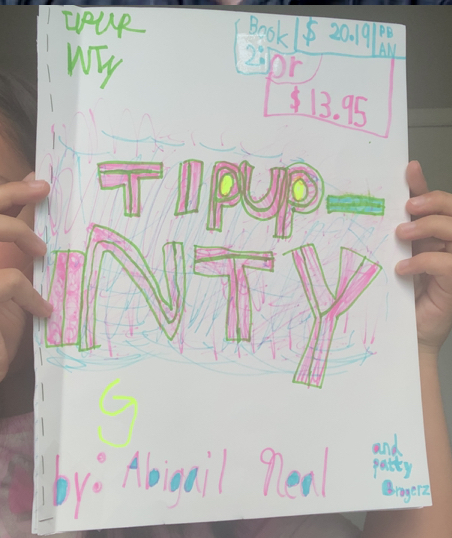 TIPUP
INTY
Book 2:
$ 20.19
PB
AN
or
$ 13.95
TIPUP-
INTY
G
by: Abigail Neal
and
patty
@rogerz